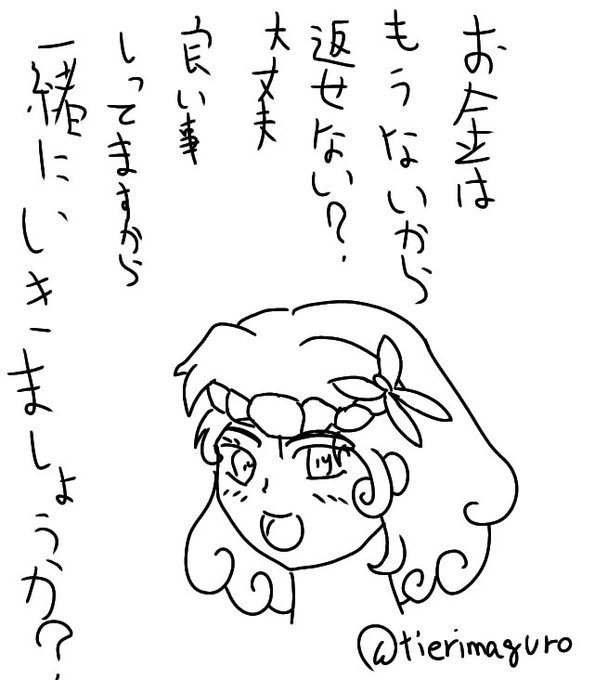 お金は
もうないから
返せない?
大丈夫
良い事
しってますから
一緒にいきましょうか?
@tierimaguro